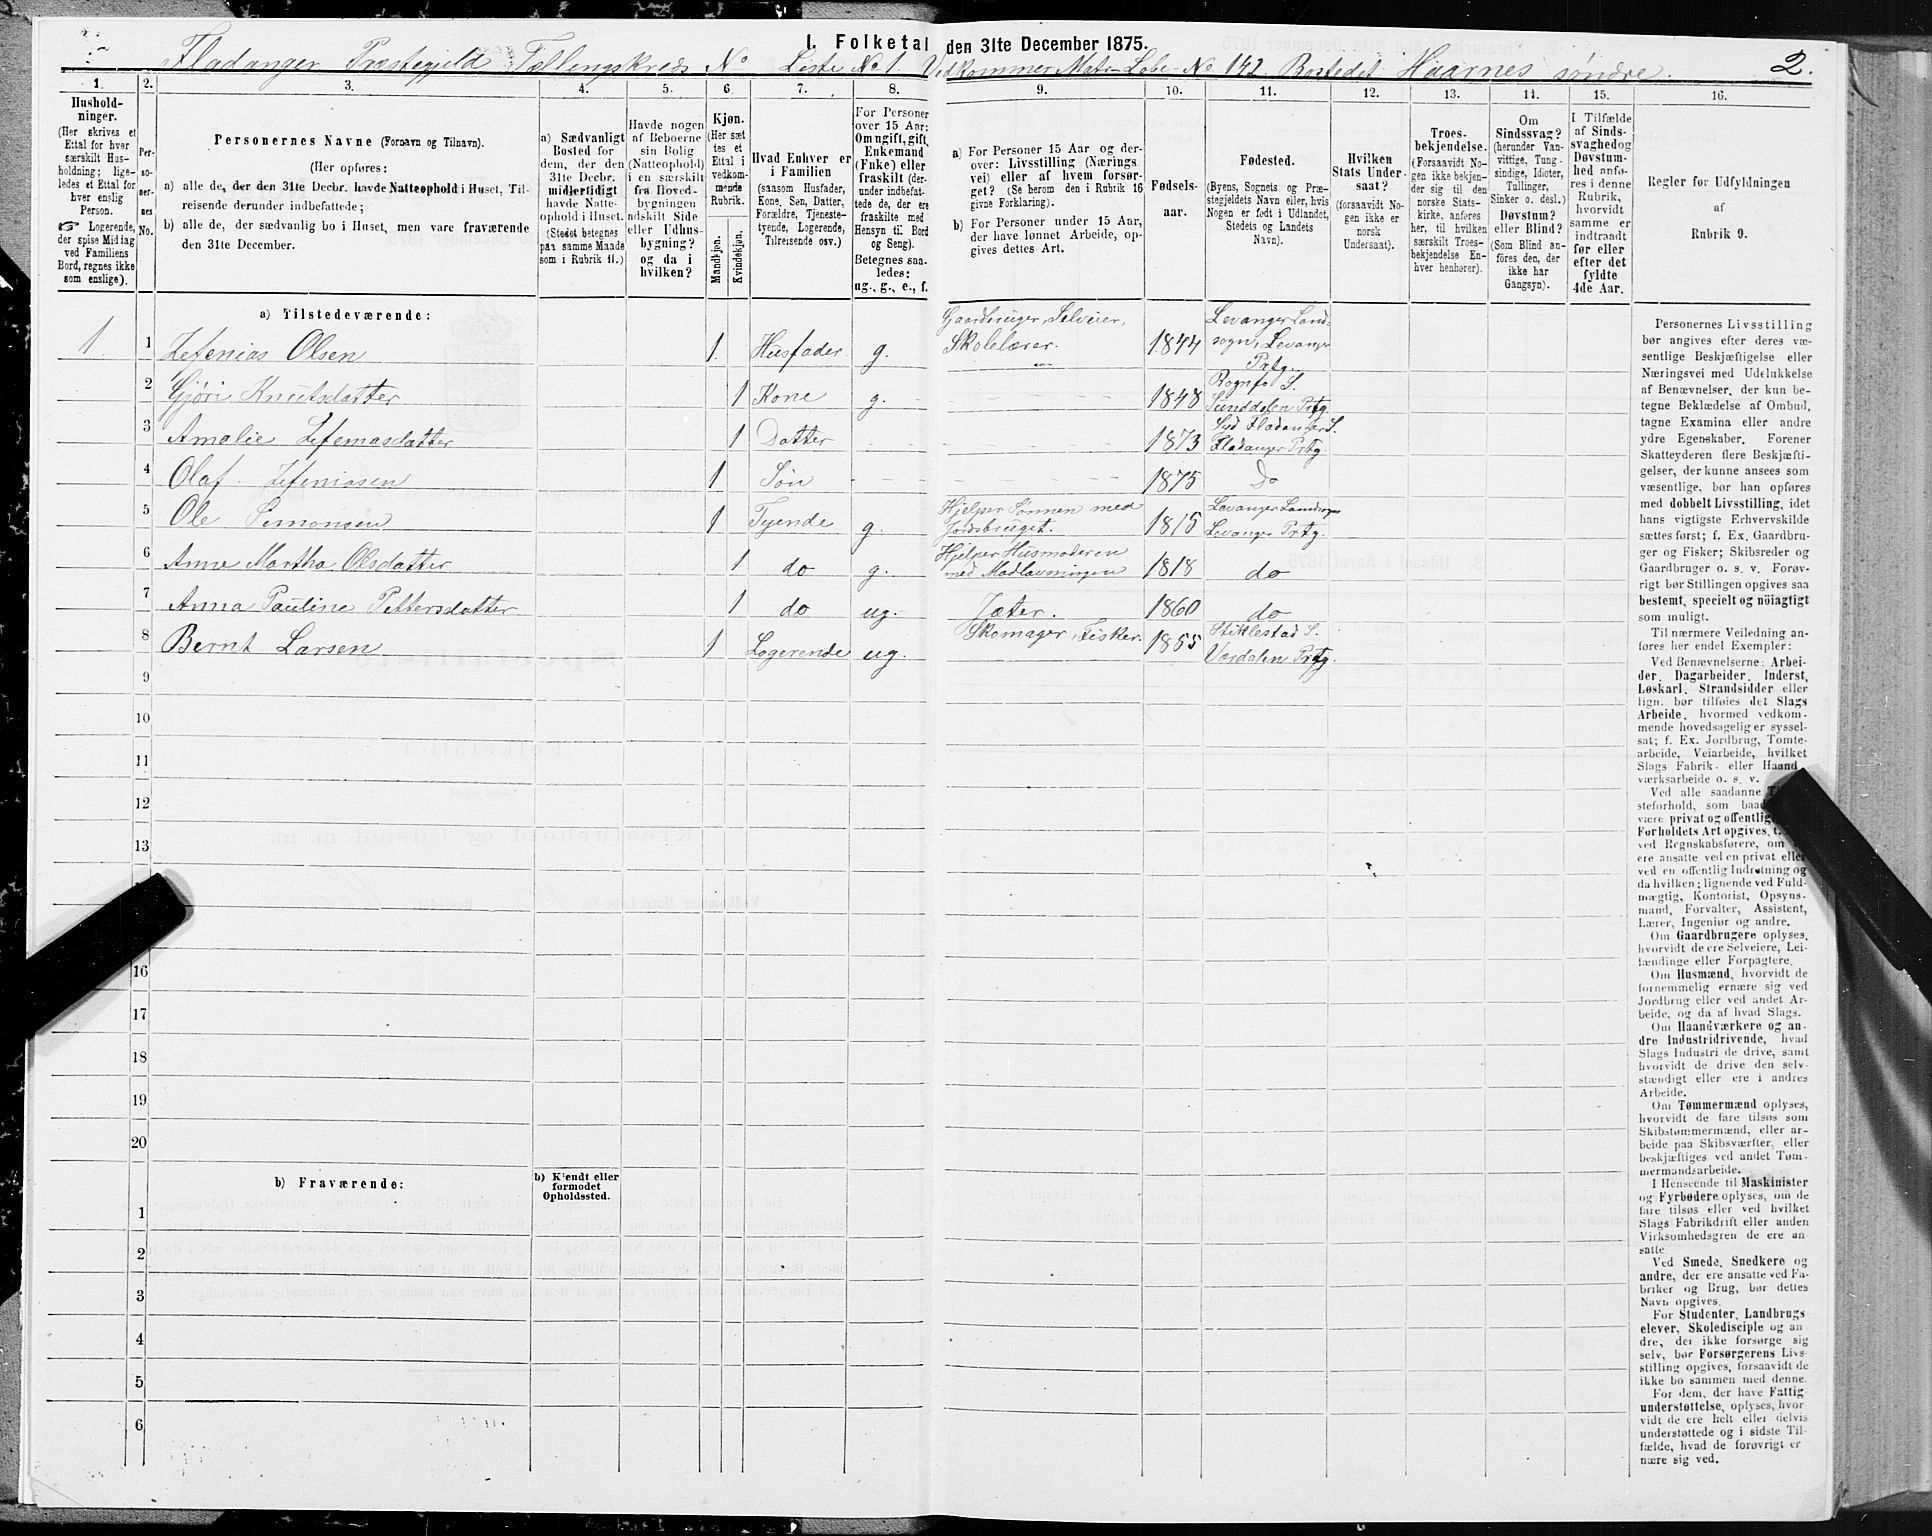 I. Folketal den 31te December 1875.
Fladanger Præstegjeld Tællingskreds No Liste No 1. Vedkommer Matr-Løbe-No 142 Bostedet Haarnes søndre. 2.
1. 2. 3. 4. 5. 6. 7. 8. 9. 10. 11. 12. 13. 14. 15. 16.
Hushold-
ninger.
(Her skrives et
Ettal for hver
særskilt Hus-
holdning; lige-
ledes et Ettal for
hver enslig
Person.
☞ Logerende,
der spise Middag
ved Familiens
Bord, regnes ikke
som enslige).
Per-
so-
ner-
nes
No.
Personernes Navne (Fornavn og Tilnavn).
(Her opføres:
a) alle de, der den 31te Decbr. havde Natteophold i Huset, Til-
reisende derunder indbefattede;
b) alle de, der sædvanlig bo i Huset, men vare fraværende
den 31te December.
a) Sædvanligt
Bosted for
dem, der den
31te Decbr.
midlertidigt
havde Natte-
ophold i Huset.
(Stedet betegnes
paa samme Maade
som i Rubrik 11.)
Havde nogen
af Beboerne
sin Bolig
(Natteophold)
i en særskilt
fra Hoved-
bygningen
adskilt Side
eller Udhus-
bygning?
og da i
hvilken?
Kjøn.
(Her sæt
tes et
Ettal i
vedkom-
mende
Rubrik.
Mandkjøn.
Kvindekjøn.
Hvad Enhver er
i Familien
(saasom Husfader,
Kone, Søn, Datter,
Forældre, Tjeneste-
tyende, Logerende,
Tilreisende osv.)
For Personer
over 15 Aar;
Om ugift, gift,
Enkemand
(Enke) eller
fraskilt (der-
under indbefat-
tede de, der ere
fraskilte med
Hensyn til Bord
og Seng).
Betegnes saa-
ledes:
ug., g., e., f.
a) For Personer 15 Aar og der-
over: Livsstilling (Nærings
vei) eller af hvem forsør-
get? (Se herom den i Rubrik 16
givne Forklaring).
b) For Personer under 15 Aar,
der have lønnet Arbeide, op-
gives dettes Art.
Fødsels-
aar.
Fødested.
(Byens, Sognets og Præ-
stegjeldets Navn eller, hvis
Nogen er født i Udlandet,
Stedets og Landets
Navn).
Hvilken
Stats Under-
saat?
(forsaavidt No-
gen ikke er
norsk
Undersaat).
Troes-
bekjendelse.
(Forsaavidt No-
gen ikke bekjen-
der sig til den
norske Stats-
kirke, anføres
her, til hvilken
særskilt Troes-
bekjendelse En-
hver henhører).
Om
Sindssvag?
(herunder Van-
vittige, Tung-
sindige, Idioter,
Tullinger,
Sinker o. desl.)
Døvstum?
eller Blind?
(Som Blind an-
føres den, der
ikke har
Gangsyn).
I Tilfælde
af Sinds-
svaghed og
Døvstum-
hed anfø-
res i denne
Rubrik,
hvorvidt
samme er
indtraadt
før eller
efter det
fyldte
4de Aar.
Regler for Udfyldningen
af
Rubrik 9.
a) Tilstedeværende:
1 1 Zefenias Olsen 1 Husfader g. Gaardbruger, Selveier, Skolelærer. 1844 Levanger Land-
sogn, Levanger
Prtg.
2 Gjøri Knutsdatter 1 Kone g. 1848 Romfo S.
Sunddalen Prtg.
3 Amalie Zefeniasdatter 1 Datter 1873 Syd Fladanger S.
Fladanger Prtg.
4 Olaf Zefeniasen 1 Søn 1875 Do
5 Ole Simonsen 1 Tyende g. Hjelper Sønnen med
Jordsbruget. 1815 Levanger Landsogn
Levanger Prtg.
6 Anne Martha Olsdatter 1 do g. Hjelper Husmoderen
med Madlavningen 1818 do
7 Anna Pauline Pettersdatter 1 do ug. Jæter. 1860 do
8 Bernt Larsen 1 Logerende ug. Skomager, Fisker. 1855 Stiklestad S.
Værdalen Prtg.
9
10
11
12
13
16
17
18
19
20
b) Fraværende:
b) Kjendt eller
formodet
Opholdssted.
1
2
3
4
5
6
Personernes Livsstilling
bør angives efter deres væ-
sentlige Beskjæftigelse eller
Næringsvei med Udelukkelse
af Benævnelser, der kun be-
tegne Beklædelse af Ombud,
tagne Examina eller andre
ydre Egenskaber. Forener
Skatteyderen flere Beskjæfti-
gelser, der kunne ansees som
væsentlige, bør han opføres
med dobbelt Livsstilling, idet
hans vigtigste Erhvervskilde
sættes først; f. Ex. Gaardbru-
ger og Fisker; Skibsreder og
Gaardbruger o. s. v. Forøv-
rigt bør Stillingen opgives saa
bestemt, specielt og nöiagtigt
som muligt.
Til nærmere Veiledning an-
føres her endel Exempler:
Ved Benævnelserne: Arbei-
der, Dagarbeider, Inderst,
Løskarl, Strandsidder eller
lign. bør tilføies det Slags
Arbeide, hvormed vedkom-
mende hovedsagelig er syssel-
sat; f. Ex. Jordbrug, Tomte-
arbeide, Veiarbeide, hvilket
Slags Fabrik- eller Haand
værksarbeide o. s. v.
Ved alle saadanne
steforhold, som baa
være privat og offentlig
Forholdets Art opgives,
ved Regnskabsførere, om
ere ansatte ved en privat eller
ved en offentlig Indretning og
da hvilken; lignende ved Fuld-
mægtig, Kontorist, Opsyns-
mand, Forvalter, Assistent,
Lærer, Ingeniør og andre.
Om Gaardbrugere oplyses,
hvorvidt de ere Selveiere, Lei-
lændinge eller Forpagtere.
Om Husmænd, hvorvidt de
fornemmelig ernære sig ved
Jordbrug eller ved andet Ar-
beide, og da af hvad Slags.
Om Haandværkere og an-
dre Industridrivende, hvad
Slags Industri de drive, samt
hvorvidt de drive den selv-
stændigt eller ere i andres
Arbeide.
Om Tømmermænd oplyses,
hvorvidt de fare tilsøs som
Skibstømmermænd, eller ar-
beide paa Skibsværfter, eller
beskjæftiges ved andet Tøm-
mermandsarbeide.
I Henseende til Maskinister
og Fyrbødere oplyses, om de
fare tilsøs eller ved hvilket
Slags Fabrikdrift eller anden
Virksomhedsgren de ere an-
satte.
Ved Smede, Snedkere og
andre, der ere ansatte ved Fa-
briker og Brug, bør dettes
Navn opgives.
For Studenter, Landbrugs
elever, Skoledisciple og an-
dre, der ikke forsørge sig
selv, bør Forsørgerens Livs-
stilling opgives, forsaavidt de
ikke bo sammen med denne.
For dem, der have Fattig
understøttelse, oplyses, hvor
vidt de ere helt eller delvis
understøttede og i sidste Til-
fælde, hvad de forøvrigt er
nære sig ved.